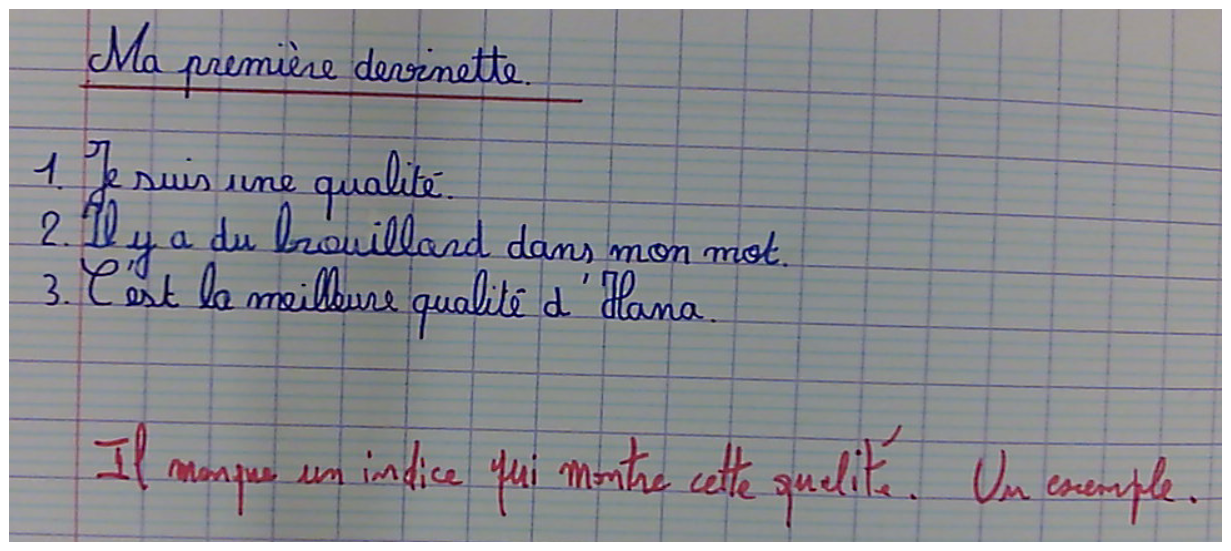 Ma première devinette.
1. Je suis une qualité.
2. Il y a du brouillard dans mon mot.
3. C'est la meilleure qualité d'Hana.
Il manque un indice qui montre cette qualité. Un exemple.